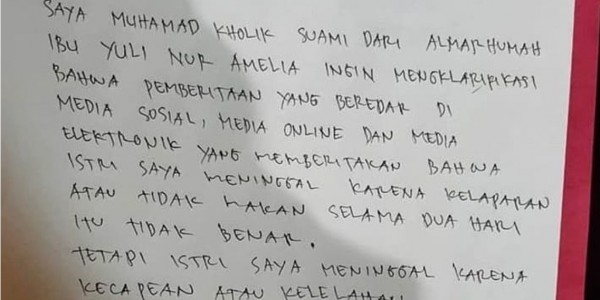 SAYA MUHAMAD KHOLIK SUAMI DARI ALMARHUMAH
IBU YULI NUR AMELIA INGIN MENGKLARIFIKASI
BAHWA PEMBERITAAN YANG BEREDAR DI
MEDIA SOSIAL, MEDIA ONLINE DAN MEDIA
ELEKTRONIK YANG MEMBERITAKAN BAHWA
ISTRI SAYA MENINGGAL KARENA KELAPARAN
ATAU TIDAK MAKAN SELAMA DUA HARI
ITU TIDAK BENAR.
TETAPI ISTRI SAYA MENINGGAL KARENA
KECAPEAN ATAU KELELAHAN